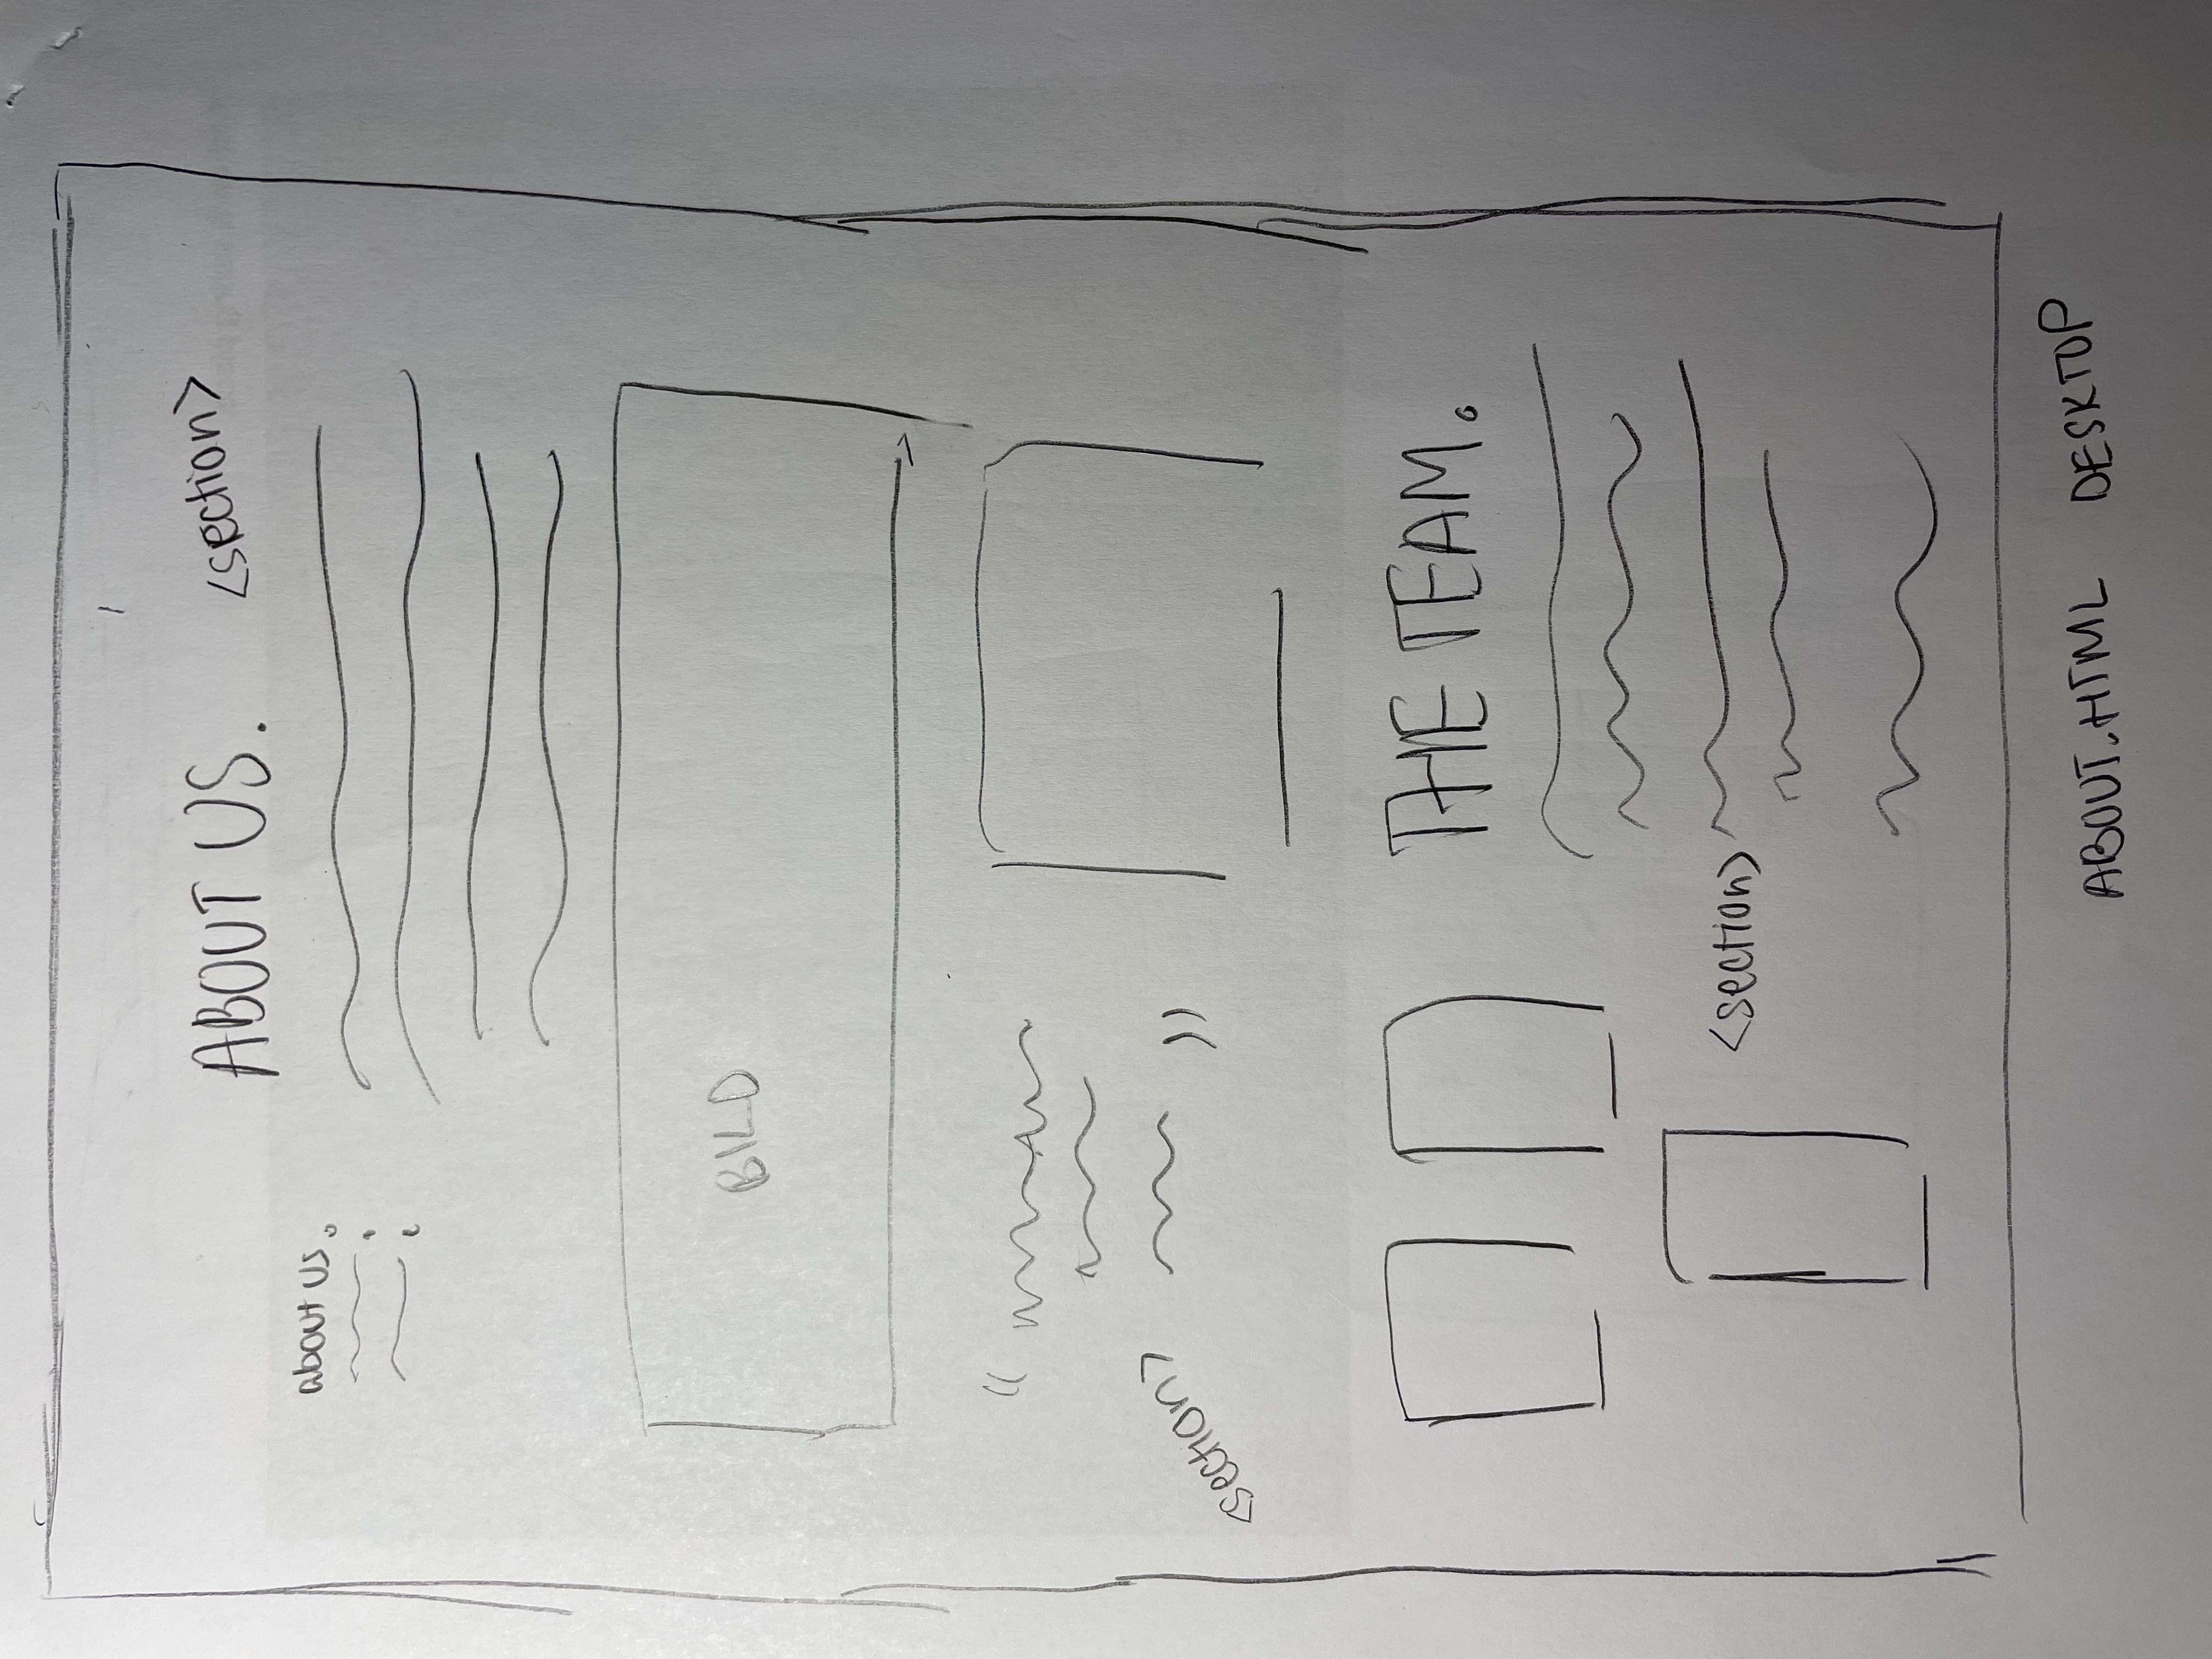 ABOUT US.
<section>
about us.
BILD
“
”
<section>
THE TEAM.
<section>
ABOUT.HTML DESKTOP